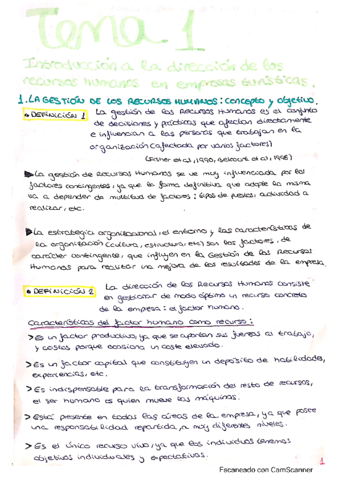 Tema 1
Introducción a la dirección de los
recursos humanos en empresas turísticas.
1. LA GESTIÓN DE LOS RECURSOS HUMANOS: concepto y objetivo.
• DEFINICIÓN 1 La gestión de los Recursos Humanos es el conjunto
de decisiones y prácticas que afectan directamente
e influencian a las personas que trabajan en la
organización (afectada por varios factores)
et al, 1990,                et al, 1998)
▶ La gestión de Recursos Humanos se ve muy influenciada por los
factores contingentes, ya que la forma definitiva que adopte la misma
va a depender de multitud de factores: tipos de puestos, actividades a
realizar, etc.
▶ La estrategia organizacional, el entorno y las características de
la organización (cultura, estructura, etc) son los factores, de
carácter contingente, que influyen en la Gestión de los Recursos
Humanos para resultar una mejora de los resultados de la empresa.
• DEFINICIÓN 2 La dirección de los Recursos Humanos consiste
en gestionar de modo óptimo un recurso concreto
de la empresa: el factor humano.
Características del factor humano como recurso:
> Es un factor productivo, ya que se aportan sus fuerzas al trabajo,
y costoso porque ocasiona un coste elevado.
> Es un factor capital que constituye un depósito de habilidades,
experiencias, etc.
> Es indispensable para la transformación del resto de recursos,
el ser humano es quien mueve las máquinas.
> Está presente en todas las áreas de la empresa, ya que posee
una responsabilidad repartida, a muy diferentes niveles.
> Es el único recurso vivo, ya que los individuos tenemos
objetivos individuales y expectativas.
1
Escaneado con CamScanner